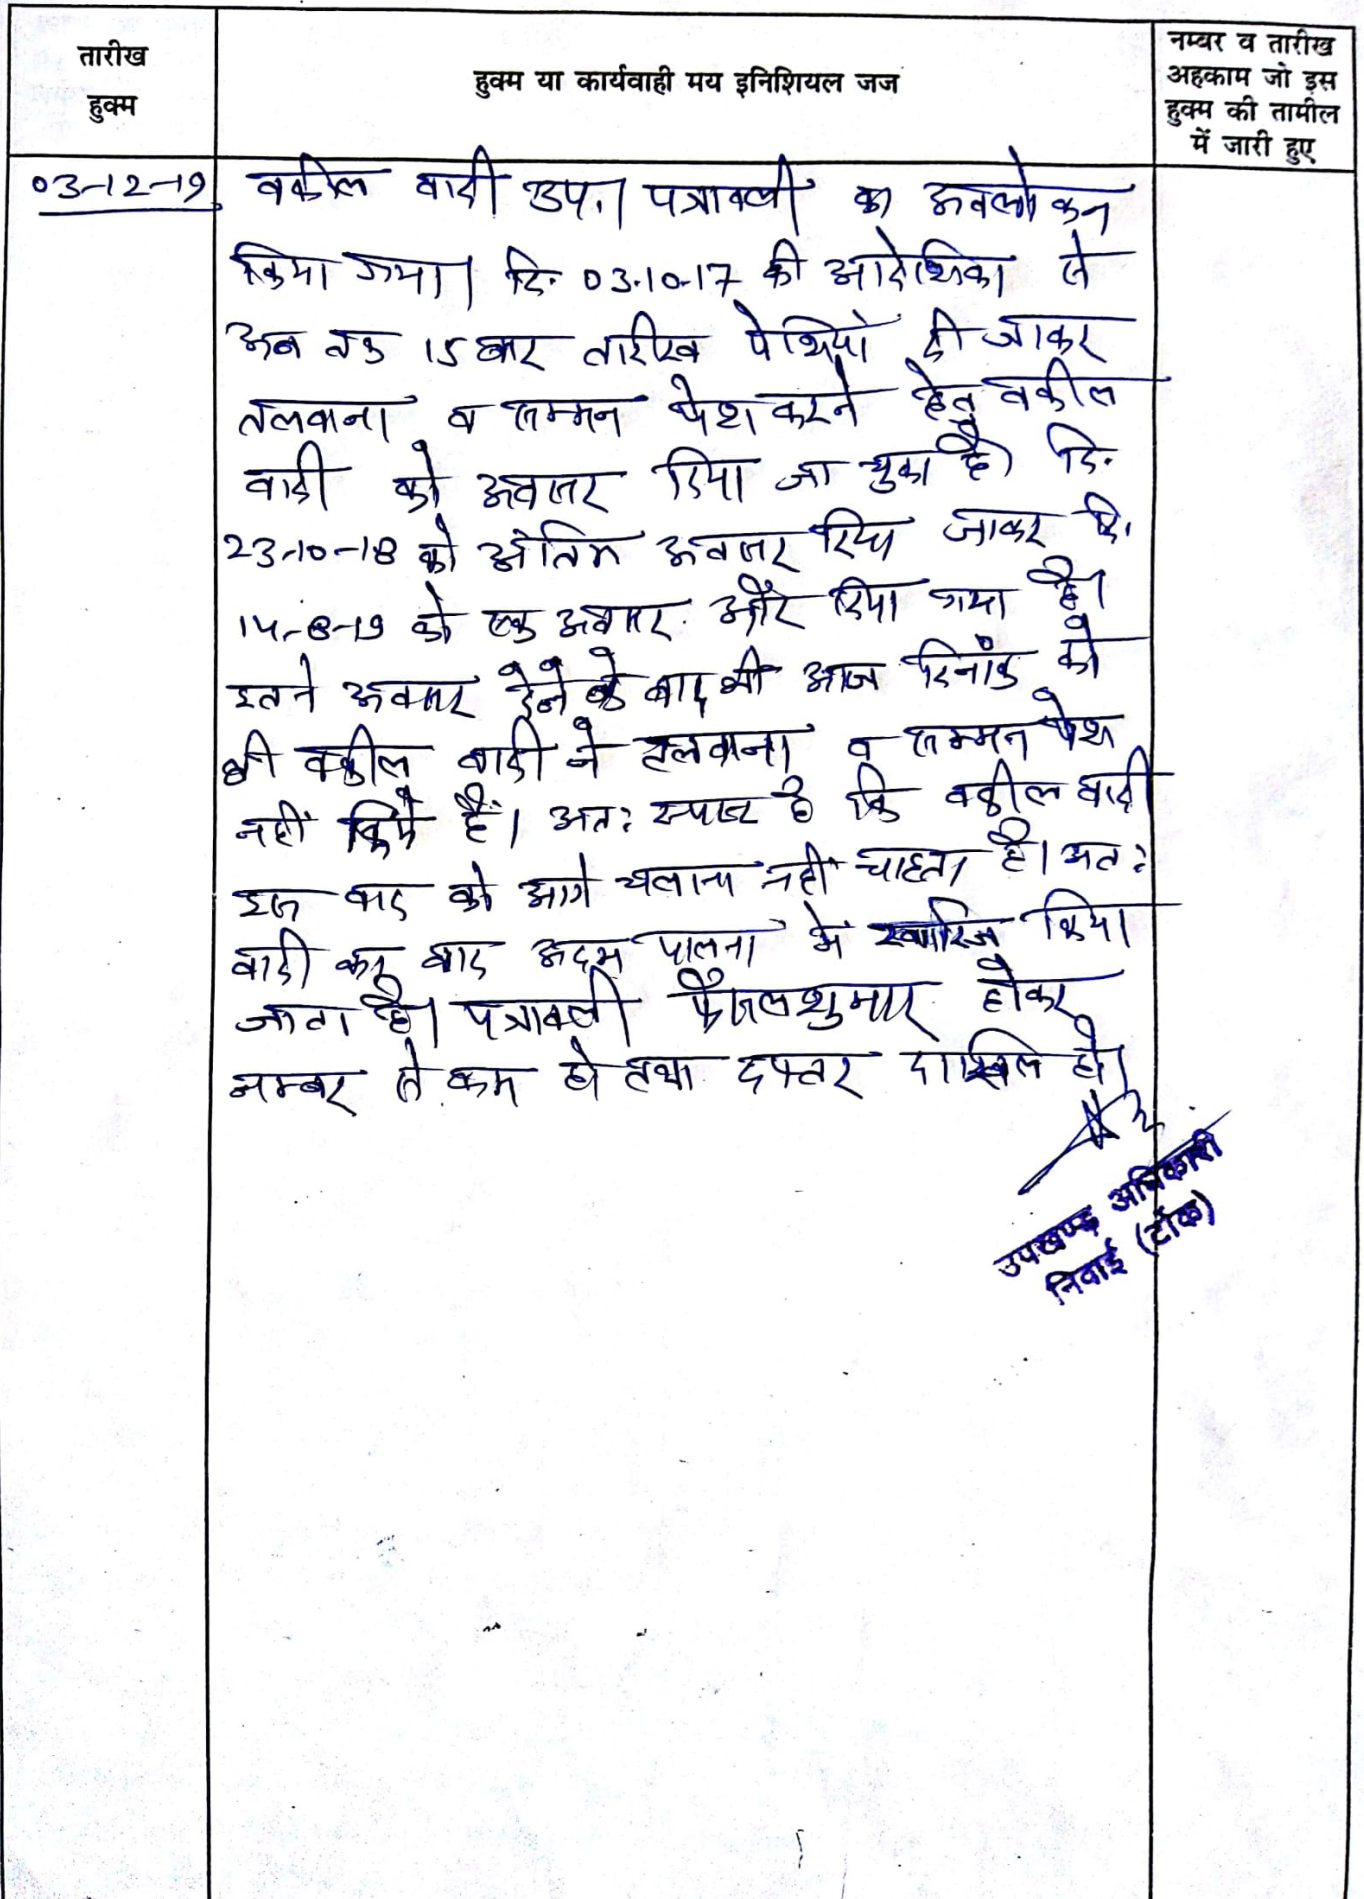 तारीख
हुक्म
हुक्म या कार्यवाही मय इनिशियल जज
नम्बर व तारीख
अहकाम जो इस
हुक्म की तामील
में जारी हुए
03-12-19
वकील वादी उप.। पत्रावली का अवलोकन
किया गया। दि. 03.10.17 की आदेशिका से
अब तक 15 बार तारीख पेशियां दी जाकर
तलवाना व सम्मन पेश करने हेतु वकील
वादी को अवसर दिया जा चुका है। दि.
23-10-18 को अंतिम अवसर दिया जाकर दि.
14-8-19 को एक अवसर और दिया गया है।
इतने अवसर देने के बाद भी आज दिनांक को
भी वकील वादी ने तलवाना व सम्मन पेश
नहीं किये हैं। अतः स्पष्ट है कि वकील वादी
इस वाद को आगे चलाना नहीं चाहता है। अतः
वादी का वाद अदम पालना में खारिज किया
जाता है। पत्रावली फैसलशुमार होकर
नम्बर से कम हो तथा दफ्तर दाखिल हो।
उपखण्ड अधिकारी
निवाई (टोंक)